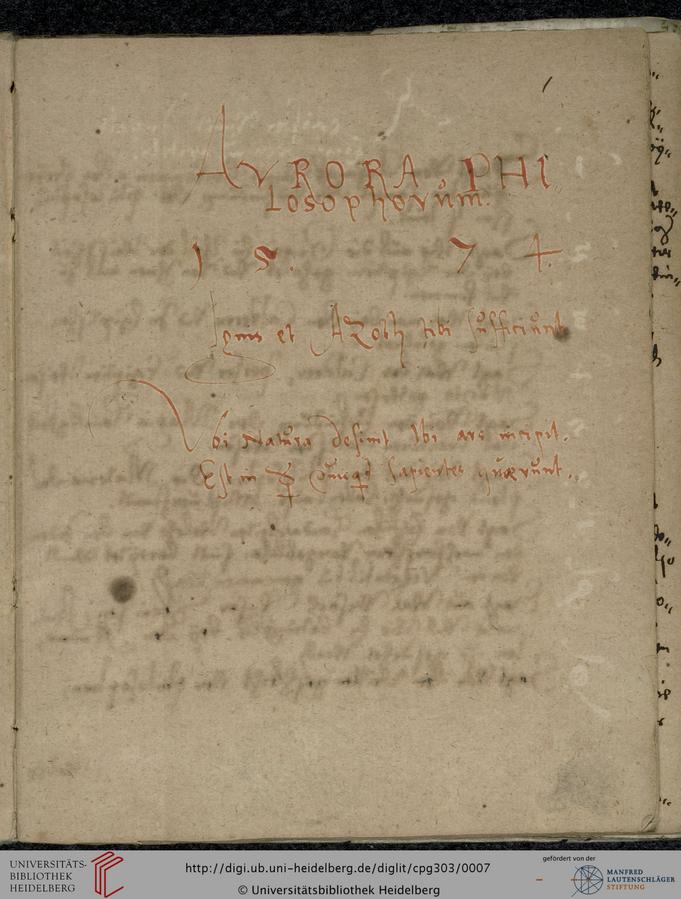 1
AVRORA PHI
Losophorum.
1 5. 7 4.
Ignis et Azoth tibi sufficiunt
Vbi Natura desinit Ibi ars incipit.
Est in ☿ sapientes quærunt.
UNIVERSITÄTS-
BIBLIOTHEK
HEIDELBERG
http://digi.ub.uni-heidelberg.de/diglit/cpg303/0007
© Universitätsbibliothek Heidelberg
gefördert von der
MANFRED
LAUTENSCHLÄGER
STIFTUNG